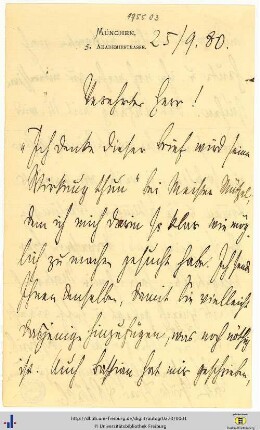 1955 03
MÜNCHEN,
5. AKADEMIESTRASSE.
25/9. 80.
Verehrter Herr!
„Ich denke dieser Brief wird seine
Wirkung thun" bei Meister
dem ich mich darin so klar wie mög-
lich zu machen gesucht habe. Ich sende
Ihnen denselben, damit Sie vielleicht
dasjenige hinzufügen, was noch nöthig
ist. Auch Bastian hat mir geschrieben,
© Universitätsbibliothek Freiburg